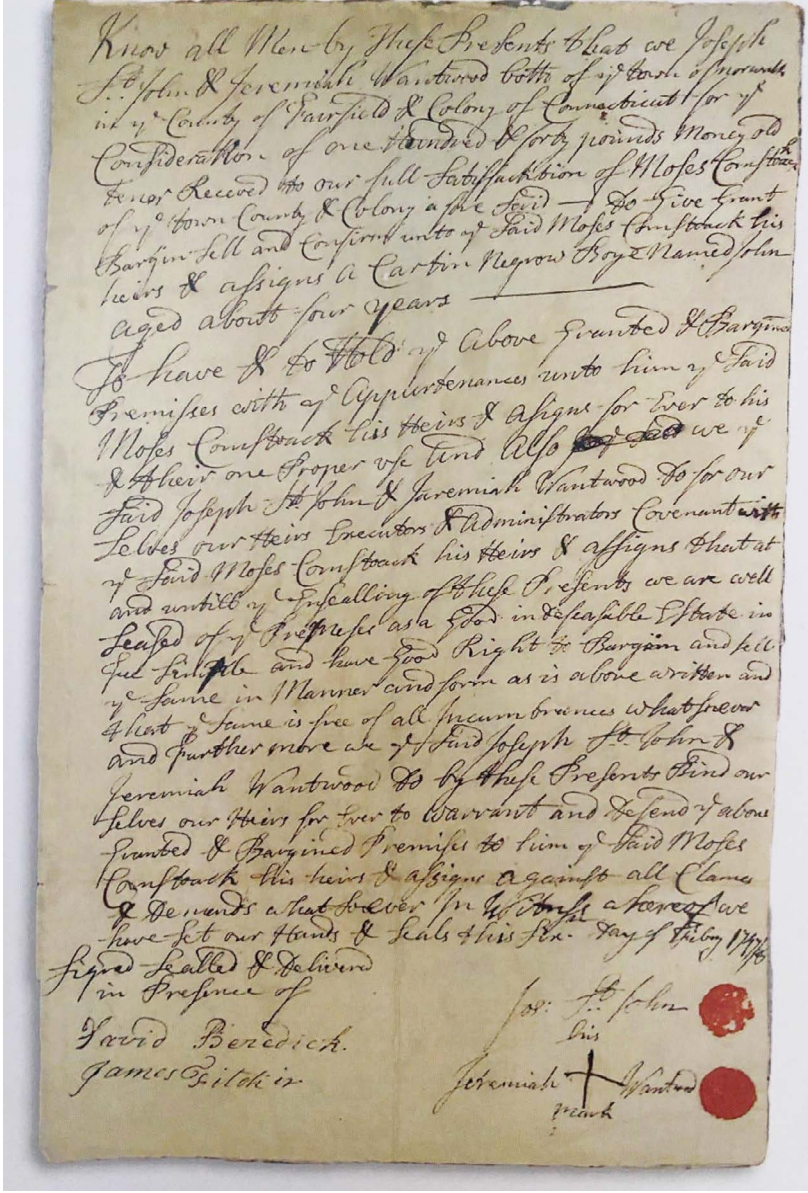 Know all Men by These Presents that we Joseph
St. John & Jeremiah Wantwood both of ye town of norwalk
in ye County of Fairfield & Colony of Connecticut for ye
Consideration of one Hundred & forty pounds Money old
tenor Receved to our full Satisfacktion of Moses Comstock
of ye town County & Colony afore Said — Do Give Grant
Bargin Sell and Confirm unto ye Said Moses Comstock his
heirs & assigns A Cartin Negrow Boye Named John
aged about four years —
To have & to Hold ye Above Granted & Bargined
Premisses with ye Appurtenances unto him ye Said
Moses Comstock his Heirs & asigns for Ever to his
& their one Proper use And Also we ye
Said Joseph St John & Jeremiah Wantwood Do for our
Selves our Heirs Executors & Administrators Covenant with
ye Said Moses Comstock his Heirs & assigns that at
and untill ye Ensealling of these Presents we are well
Seased of ye Premeses as a Good indefeasable Estate in
fee Simple and have Good Right to Bargain and sell
ye Same in Manner and form as is above written and
that ye Same is free of all Incumbrances whatsoever
and Further more we ye Said Joseph St. John &
Jeremiah Wantwood Do by these Presents Bind our
selves our Heirs for Ever to warrant and Defend ye above
Granted & Bargined Premises to him ye Said Moses
Comstock his heirs & assigns against all Clames
& Demands whatsoever In Witness whereof we
have set our Hands & Seals this day of Febry 1747/8
Signed Sealled & Delivered
in Presence of
Jos: St. John
his
David Benedick.
James Fitch ir
Jeremiah + Wantwod
mark